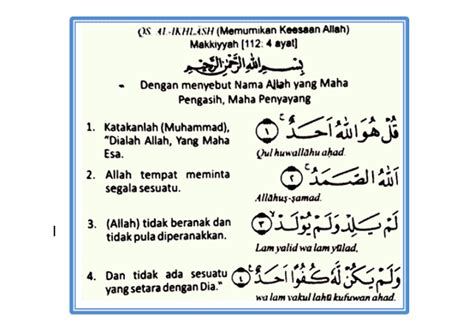 QS. AL-IKHLASH (Memurnikan Keesaan Allah)
Makkiyyah [112: 4 ayat]
بِسْمِ اللّٰهِ الرَّحْمٰنِ الرَّحِيْمِ
Dengan menyebut Nama Allah yang Maha
Pengasih, Maha Penyayang
1. Katakanlah (Muhammad),
"Dialah Allah, Yang Maha
Esa.
قُلْ هُوَ اللّٰهُ اَحَدٌ ۚ ١
Qul huwallāhu aḥad.
2. Allah tempat meminta
segala sesuatu.
اَللّٰهُ الصَّمَدُ ۚ ٢
Allāhuṣ-ṣamad.
3. (Allah) tidak beranak dan
tidak pula diperanakkan.
لَمْ يَلِدْ وَلَمْ يُوْلَدْ ۙ ٣
Lam yalid wa lam yūlad,
4. Dan tidak ada sesuatu
yang setara dengan Dia."
وَلَمْ يَكُنْ لَّهٗ كُفُوًا اَحَدٌ ٤
wa lam yakul lahū kufuwan ahad.